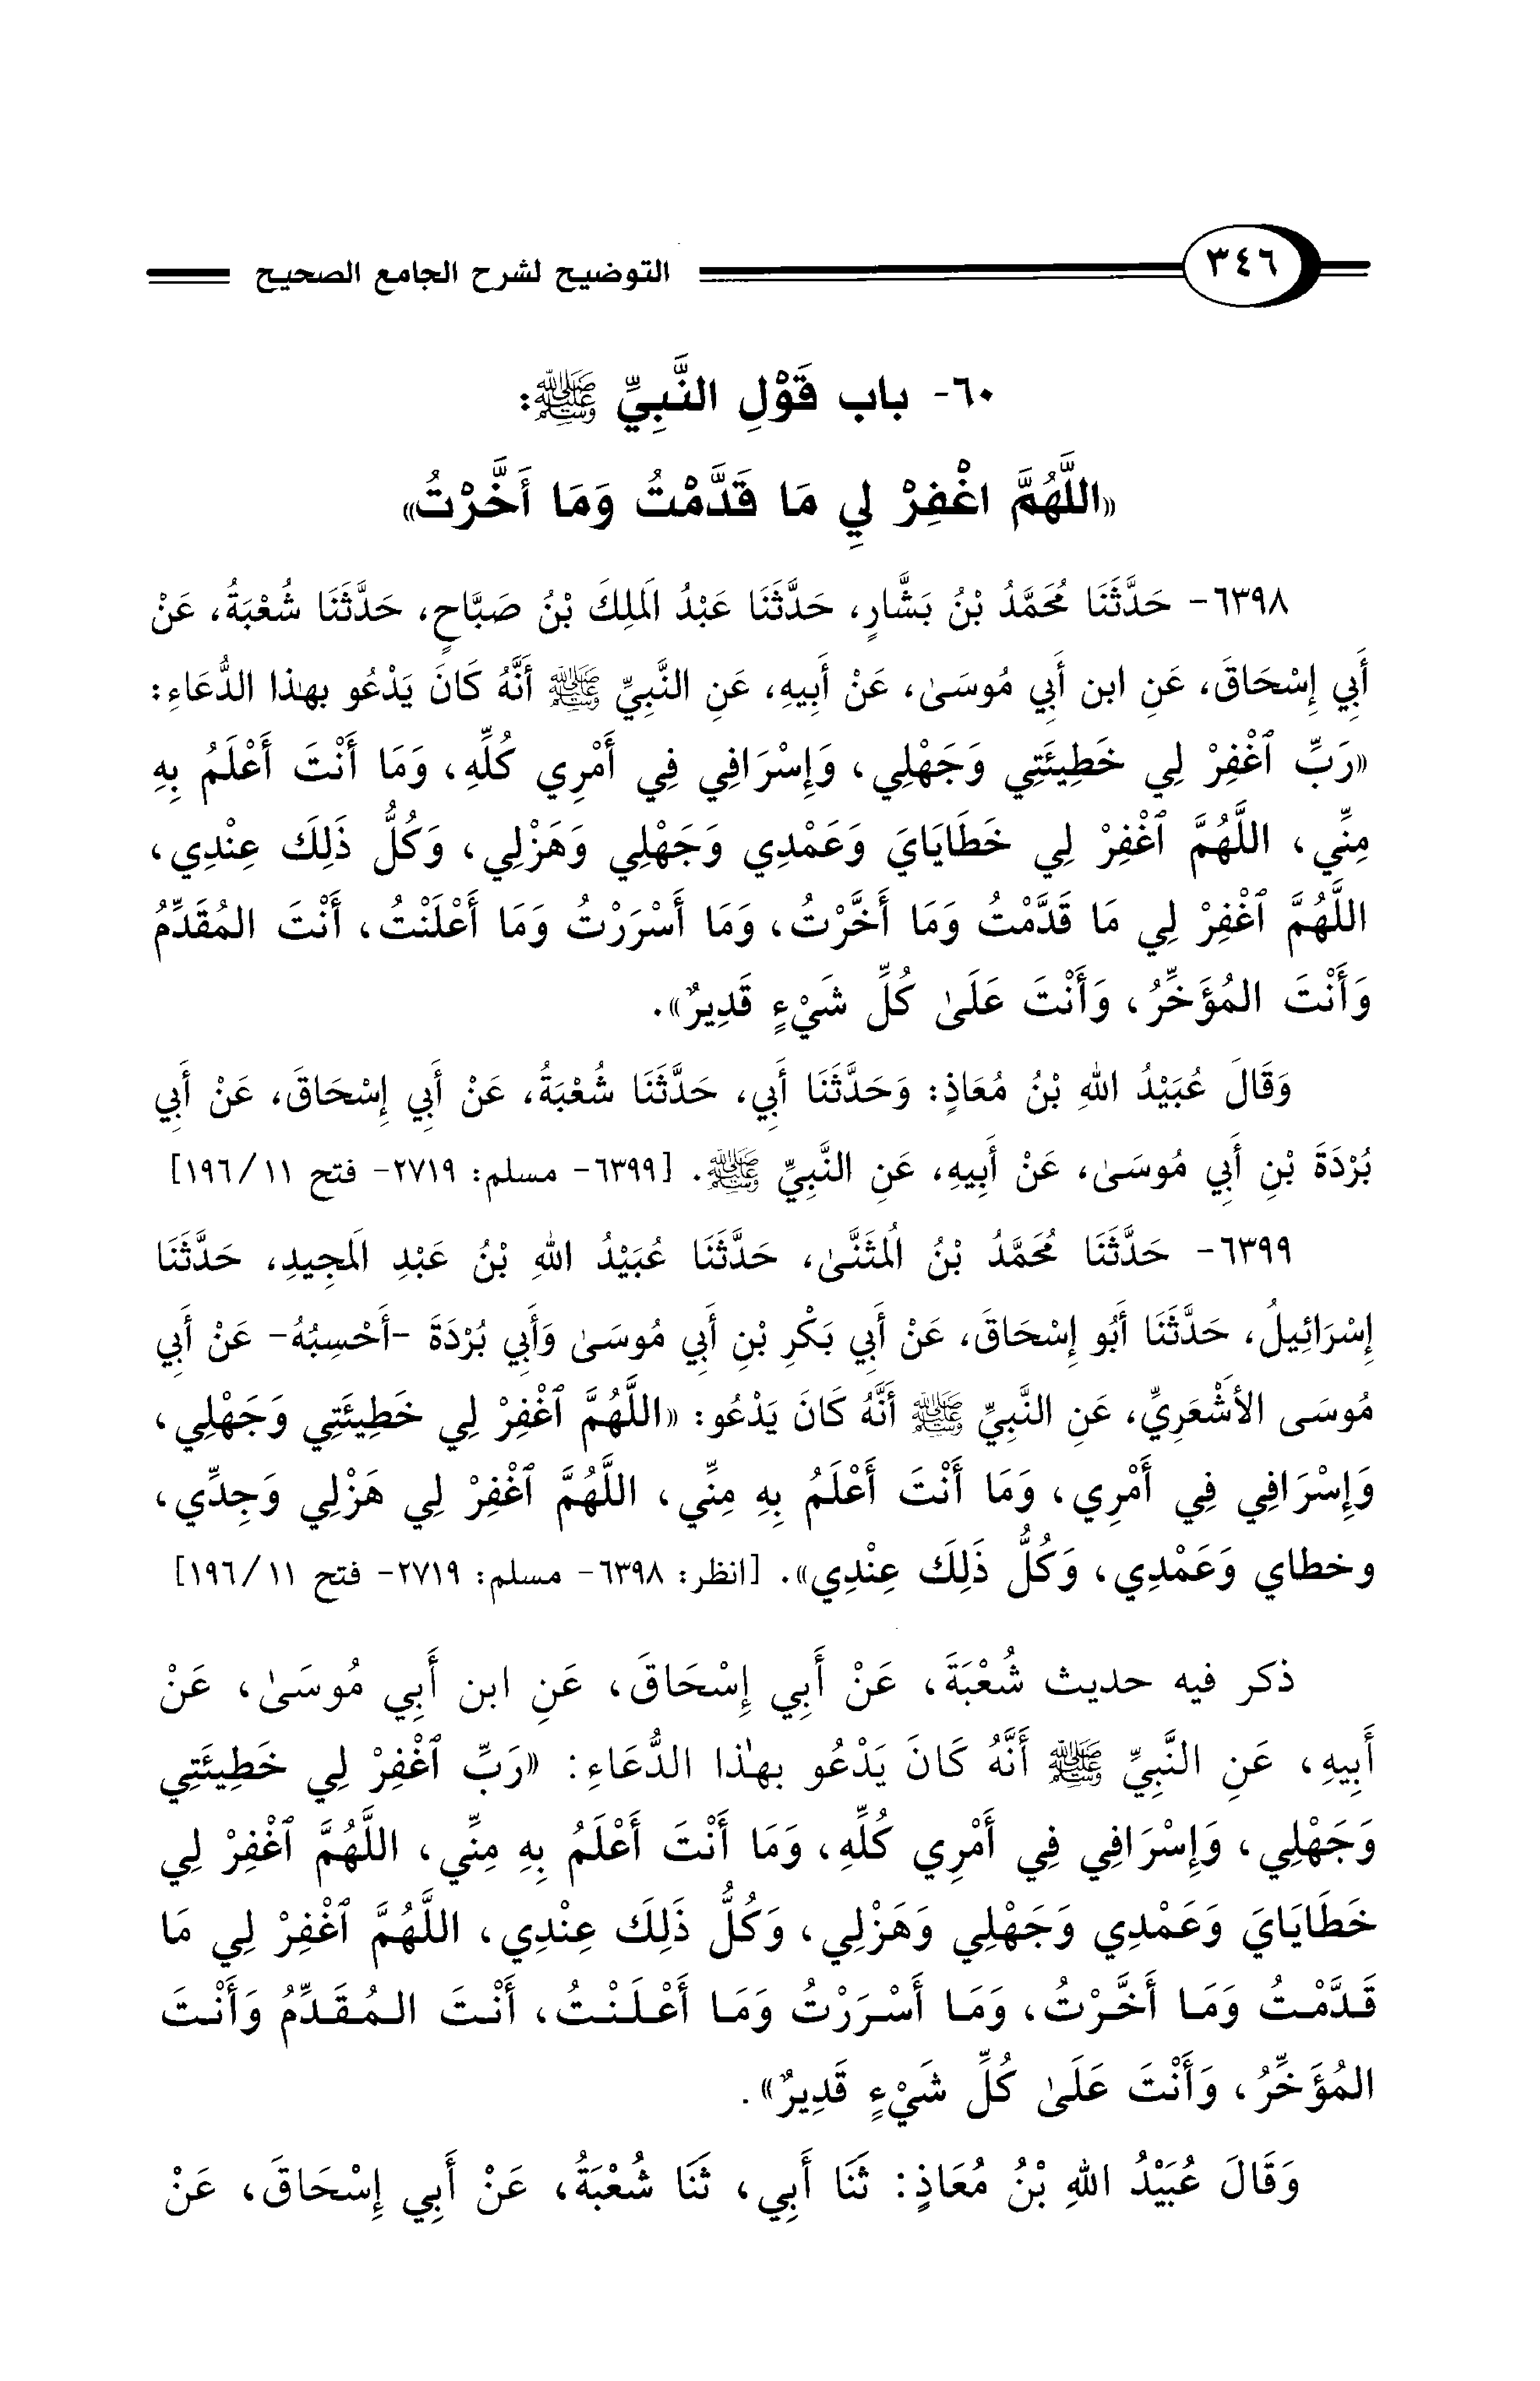 ٣٤٦ التوضيح لشرح الجامع الصحيح
٦٠- باب قَوْلِ النَّبِيِّ ﷺ:
«اللَّهُمَّ اغْفِرْ لِي مَا قَدَّمْتُ وَمَا أَخَّرْتُ»
٦٣٩٨- حَدَّثَنَا مُحَمَّدُ بْنُ بَشَّارٍ، حَدَّثَنَا عَبْدُ الَملِكَ بْنُ صَبَّاحٍ، حَدَّثَنَا شُعْبَةُ، عَنْ
أَبِي إِسْحَاقَ، عَنِ ابن أَبِي مُوسَىٰ، عَنْ أَبِيهِ، عَنِ النَّبِيِّ ﷺ أَنَّهُ كَانَ يَدْعُو بهٰذا الدُّعَاءِ:
«رَبِّ ٱغْفِرْ لِي خَطِيئَتِي وَجَهْلِي، وَإِسْرَافِي فِي أَمْرِي كُلِّهِ، وَمَا أَنْتَ أَعْلَمُ بِهِ
مِنِّي، اللَّهُمَّ ٱغْفِرْ لِي خَطَايَايَ وَعَمْدِي وَجَهْلِي وَهَزْلِي، وَكُلُّ ذَلِكَ عِنْدِي،
اللَّهُمَّ ٱغْفِرْ لِي مَا قَدَّمْتُ وَمَا أَخَّرْتُ، وَمَا أَسْرَرْتُ وَمَا أَعْلَنْتُ، أَنْتَ المُقَدِّمُ
وَأَنْتَ المُؤَخِّرُ، وَأَنْتَ عَلَىٰ كُلِّ شَيْءٍ قَدِيرٌ».
وَقَالَ عُبَيْدُ اللهِ بْنُ مُعَاذٍ: وَحَدَّثَنَا أَبِي، حَدَّثَنَا شُعْبَةُ، عَنْ أَبِي إِسْحَاقَ، عَنْ أَبِي
بُرْدَةَ بْنِ أَبِي مُوسَىٰ، عَنْ أَبِيهِ، عَنِ النَّبِيِّ ﷺ. [٦٣٩٩- مسلم: ٢٧١٩- فتح ١١/١٩٦]
٦٣٩٩- حَدَّثَنَا مُحَمَّدُ بْنُ الُمثَنَّىٰ، حَدَّثَنَا عُبَيْدُ اللهِ بْنُ عَبْدِ الَمجِيدِ، حَدَّثَنَا
إِسْرَائِيلُ، حَدَّثَنَا أَبُو إِسْحَاقَ، عَنْ أَبِي بَكْرِ بْنِ أَبِي مُوسَىٰ وَأَبِي بُرْدَةَ -أَحْسِبُهُ- عَنْ أَبِي
مُوسَى الأَشْعَرِيِّ، عَنِ النَّبِيِّ ﷺ أَنَّهُ كَانَ يَدْعُو: «اللَّهُمَّ ٱغْفِرْ لِي خَطِيئَتِي وَجَهْلِي،
وَإِسْرَافِي فِي أَمْرِي، وَمَا أَنْتَ أَعْلَمُ بِهِ مِنِّي، اللَّهُمَّ ٱغْفِرْ لِي هَزْلِي وَجِدِّي،
وخطاي وَعَمْدِي، وَكُلُّ ذَلِكَ عِنْدِي». [انظر: ٦٣٩٨- مسلم: ٢٧١٩- فتح ١١/١٩٦]
ذكر فيه حديث شُعْبَةَ، عَنْ أَبِي إِسْحَاقَ، عَنِ ابن أَبِي مُوسَىٰ، عَنْ
أَبِيهِ، عَنِ النَّبِيِّ ﷺ أَنَّهُ كَانَ يَدْعُو بهٰذا الدُّعَاءِ: «رَبِّ ٱغْفِرْ لِي خَطِيئَتِي
وَجَهْلِي، وَإِسْرَافِي فِي أَمْرِي كُلِّهِ، وَمَا أَنْتَ أَعْلَمُ بِهِ مِنِّي، اللَّهُمَّ ٱغْفِرْ لِي
خَطَايَايَ وَعَمْدِي وَجَهْلِي وَهَزْلِي، وَكُلُّ ذَلِكَ عِنْدِي، اللَّهُمَّ ٱغْفِرْ لِي مَا
قَدَّمْتُ وَمَا أَخَّرْتُ، وَمَا أَسْرَرْتُ وَمَا أَعْلَنْتُ، أَنْتَ المُقَدِّمُ وَأَنْتَ
المُؤَخِّرُ، وَأَنْتَ عَلَىٰ كُلِّ شَيْءٍ قَدِيرٌ».
وَقَالَ عُبَيْدُ اللهِ بْنُ مُعَاذٍ: ثَنَا أَبِي، ثَنَا شُعْبَةُ، عَنْ أَبِي إِسْحَاقَ، عَنْ